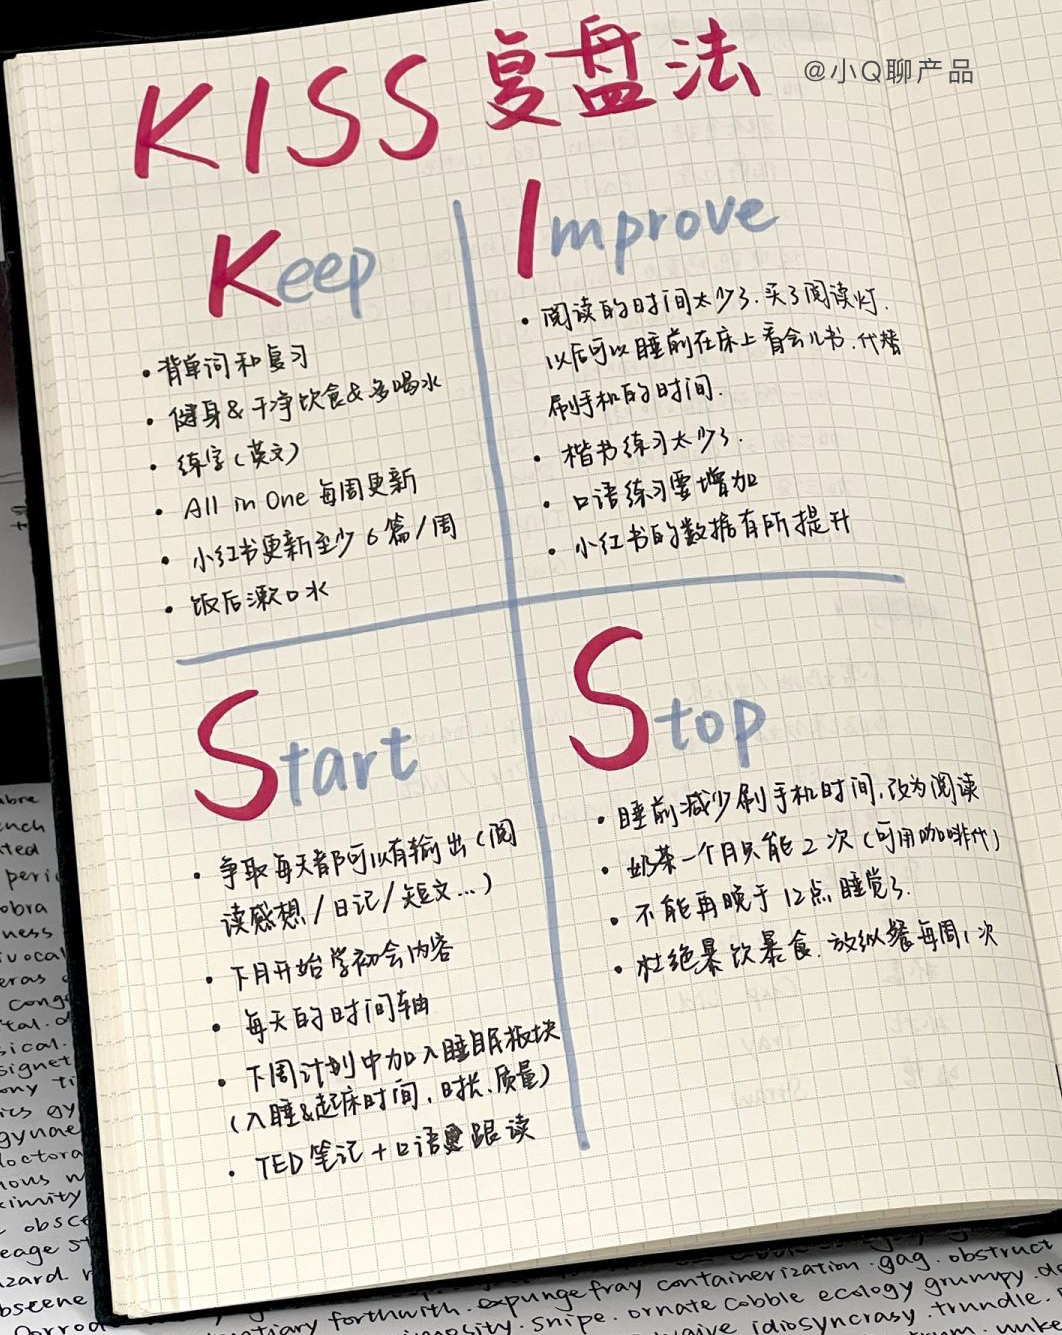 KISS 复盘法
@小Q聊产品
Keep
· 背单词和复习
· 健身&干净饮食&多喝水
· 练字(英文)
· All in One 每周更新
· 小红书更新至少6篇/周
· 饭后漱口水
Improve
· 阅读的时间太少了.买了阅读灯.
以后可以睡前在床上看会儿书.代替
刷手机的时间.
· 楷书练习太少了.
· 口语练习要增加
· 小红书的数据有所提升
Start
· 争取每天都可以有输出(阅
读感想/日记/短文...)
· 下月开始学初会内容
· 每天的时间轴
· 下周计划中加入睡眠板块
(入睡&起床时间.时长.质量)
· TED笔记+口语跟读
Stop
· 睡前减少刷手机时间.改为阅读
· 奶茶一个月只能2次(可用咖啡代)
· 不能再晚于12点睡觉了.
· 杜绝暴饮暴食.放纵餐每周1次
forthwith. expunge fray containerization. gag. obstruct
snipe. ornate cobble ecology grumpy.
idiosyncrasy trundle.